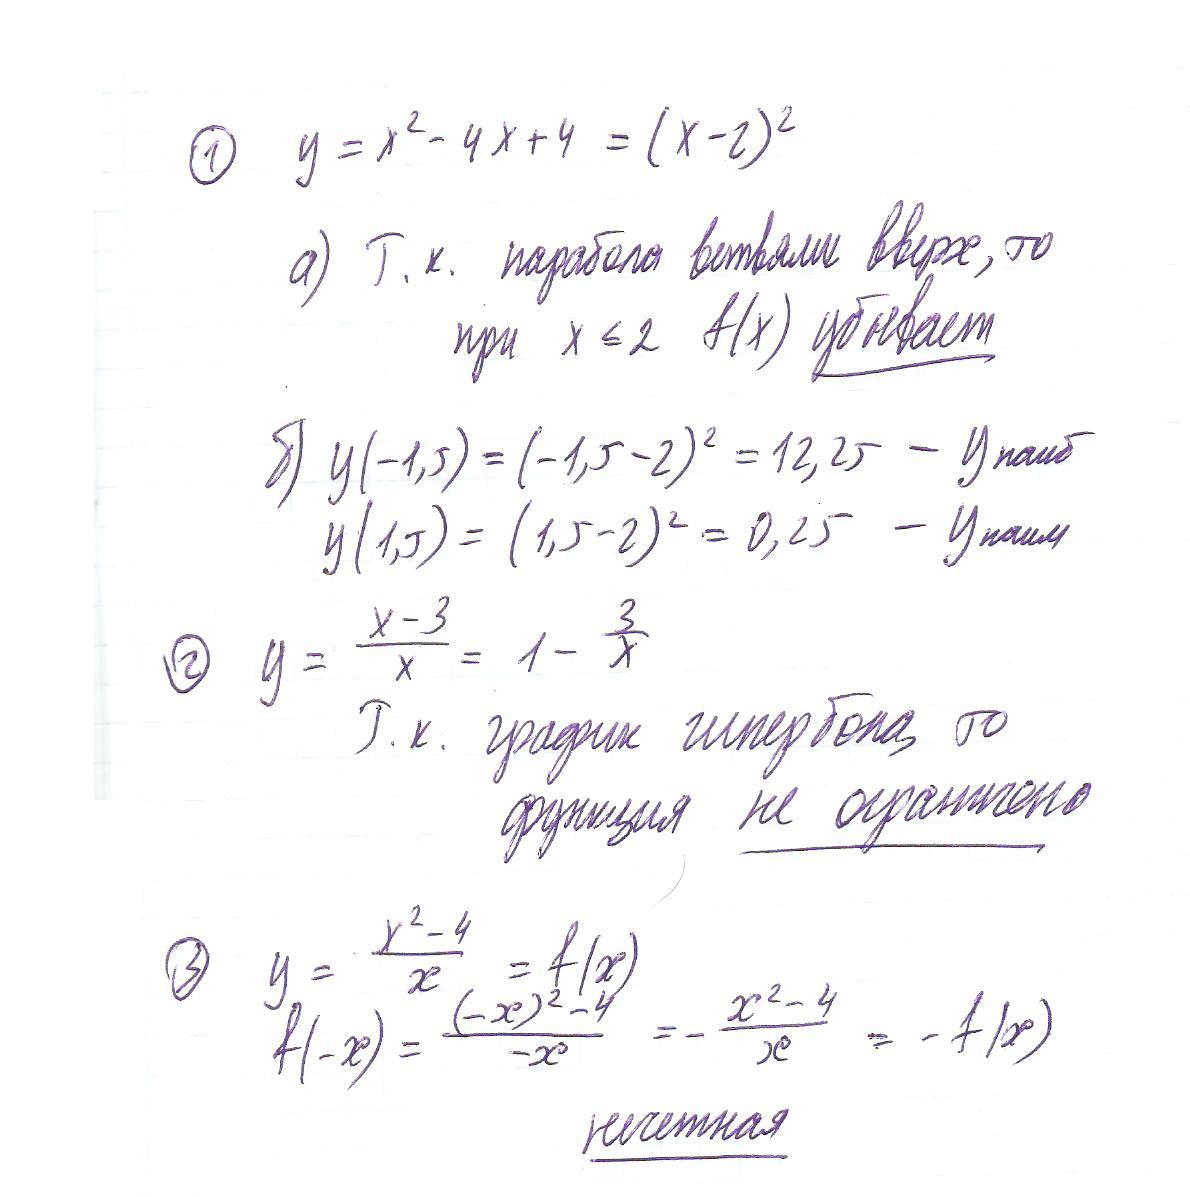 ① y = x² - 4x + 4 = (x - 2)²
а) Т.к. парабола ветвями вверх, то
при x ≤ 2 f(x) убывает
б) y(-1,5) = (-1,5 - 2)² = 12,25 - y наиб
y(1,5) = (1,5 - 2)² = 0,25 - y наим
② y = (x - 3)/x = 1 - 3/x
Т.к. график гипербола, то
функция не ограничено
③ y = (x² - 4)/x = f(x)
f(-x) = ((-x)² - 4)/(-x) = - (x² - 4)/x = - f(x)
нечетная